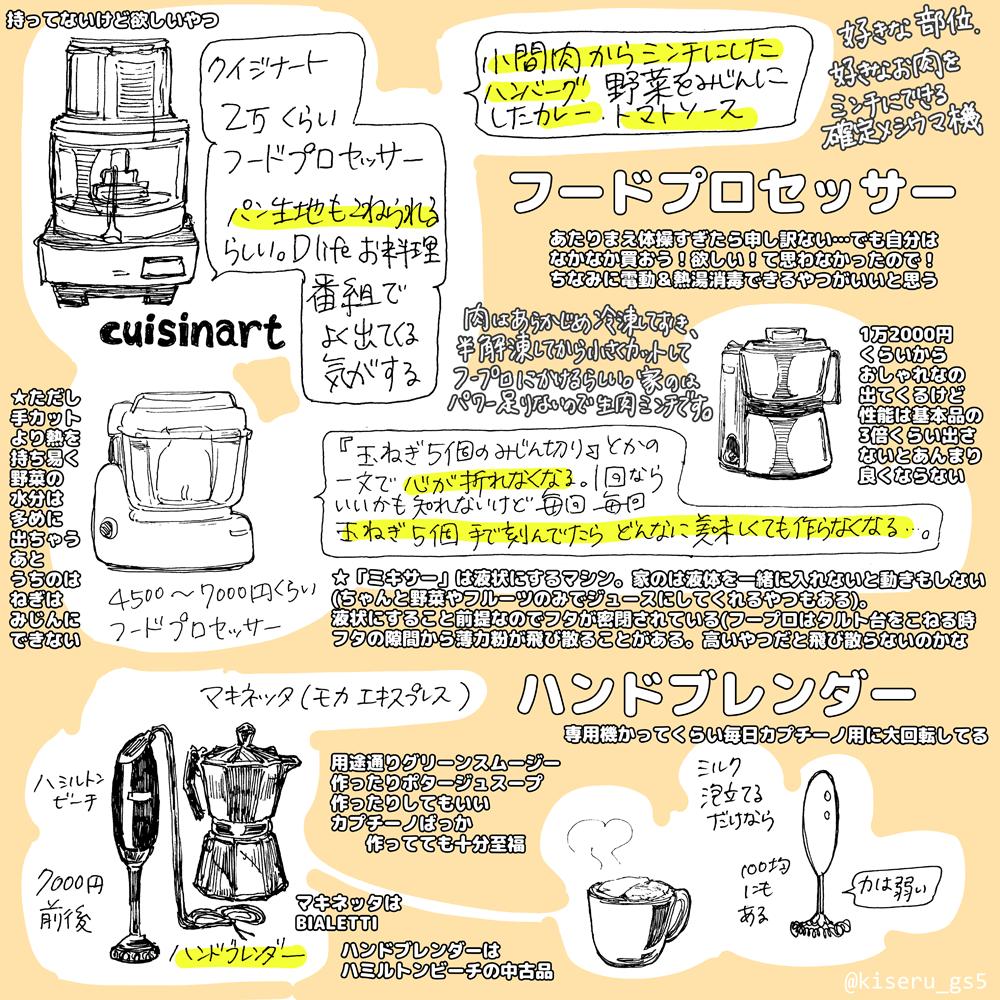 持ってないけど欲しいやつ
クイジナート
2万くらい
フードプロセッサー
パン生地もこねられる
らしい。Dlifeお料理
番組で
よく出てくる
気がする
cuisinart
小間肉からミンチにした
ハンバーグ 野菜をみじんに
したカレー、トマトソース
好きな部位、
好きなお肉を
ミンチにできる
確定メシウマ機
フードプロセッサー
あたりまえ体操すぎたら申し訳ない…でも自分は
なかなか買おう！欲しい！て思わなかったので！
ちなみに電動&熱湯消毒できるやつがいいと思う
肉はあらかじめ冷凍しておき、
半解凍してから小さくカットして
フープロにかけるらしい。家のは
パワー足りないので生肉ミンチです。
1万2000円
くらいから
おしゃれなの
出てくるけど
性能は基本品の
3倍くらい出さ
ないとあんまり
良くならない
★ただし
手カット
より熱を
持ち易く
野菜の
水分は
多めに
出ちゃう
あと
うちのは
ねぎは
みじんに
できない
4500～7000円くらい
フードプロセッサー
『玉ねぎ5個のみじん切り』とかの
一文で心が折れなくなる。1回なら
いいかも知れないけど毎回毎回
玉ねぎ5個手で刻んでたらどんなに美味しくても作らなくなる…。
★「ミキサー」は液状にするマシン。家のは液体を一緒に入れないと動きもしない
(ちゃんと野菜やフルーツのみでジュースにしてくれるやつもある)。
液状にすること前提なのでフタが密閉されている(フープロはタルト台をこねる時
フタの隙間から薄力粉が飛び散ることがある。高いやつだと飛び散らないのかな
ハンドブレンダー
専用機かってくらい毎日カプチーノ用に大回転してる
マキネッタ(モカエキスプレス)
ハミルトン
ビーチ
7000円
前後
ハンドブレンダー
用途通りグリーンスムージー
作ったりポタージュスープ
作ったりしてもいい
カプチーノばっか
作ってても十分至福
マキネッタは
BIALETTI
ハンドブレンダーは
ハミルトンビーチの中古品
ミルク
泡立てる
だけなら
100均
にも
ある
力は弱い
@kiseru_gs5